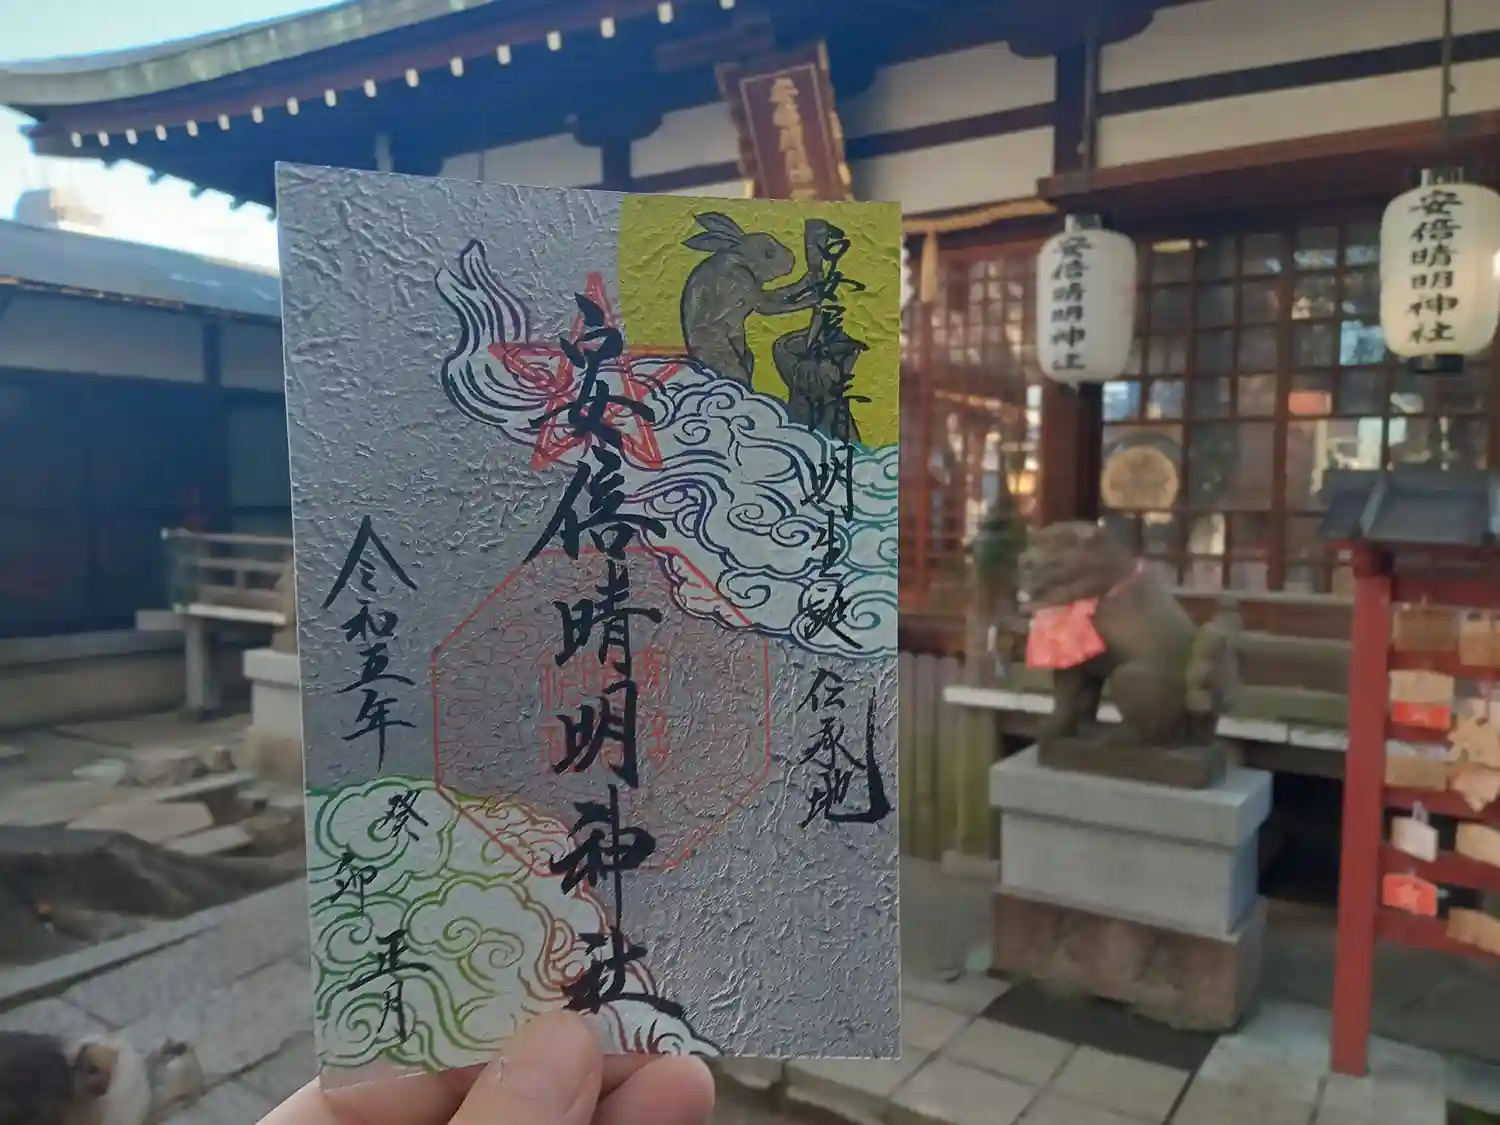 安倍晴明生誕伝承地
安倍晴明神社
令和五年
癸卯
正月
安倍晴明神社
安倍晴明神社